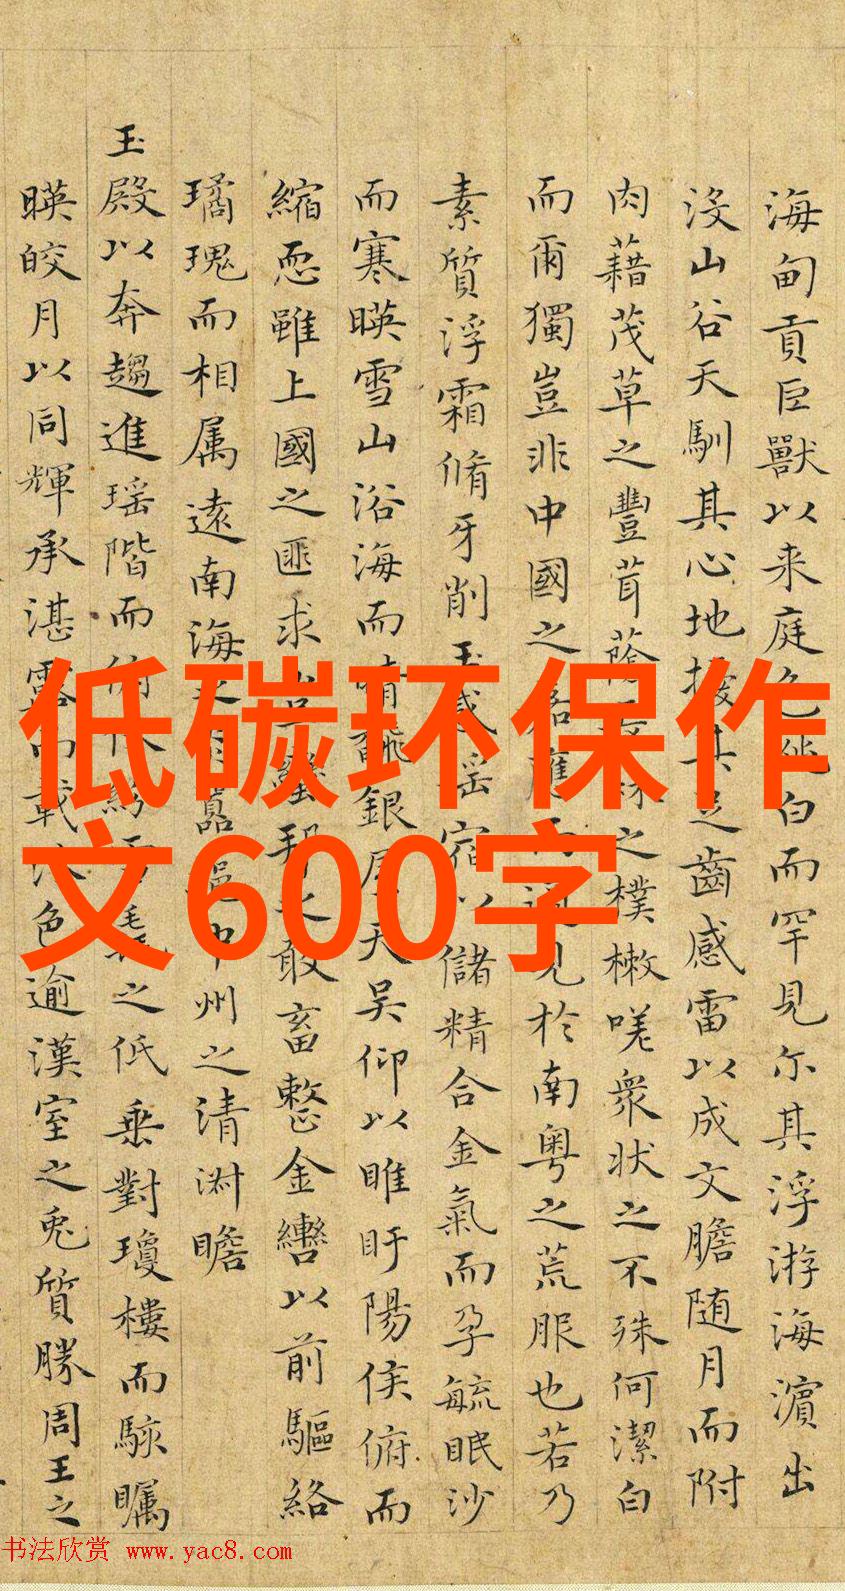 低碳环保作
文600字
海甸貢巨獸以来庭色白而罕見尓其浮游海濱出
没山谷天馴其心地其足齒感雷以成文膽随月而附
肉藉茂草之豐茸蔭之樸樕嗟衆状之不殊何潔白
而爾獨豈非中國之見於南粤之荒服也若乃
素質浮霜脩牙削玉儲精合金氣而孕毓眠沙
而寒暎雪山浴海而晴銀屋天吴仰以睢盱陽侯俯而
縮恧雖上國之匪求敢畜整金轡以前驅絡
璚瑰而相属遠南海之中州之清渊瞻
玉殿以奔趨進瑶階而之低垂對瓊樓而駭矚
暎皎月以同輝承湛露而載色逾漢室之兎質勝周王之
书法欣赏 www.yac8.com